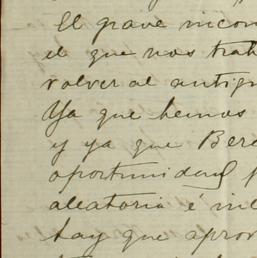 El grave incon
el que nos trah
volver al antigu
Ya que hemos
y ya que Bere
oportunidad p
aleatoria é in
hay que aprov